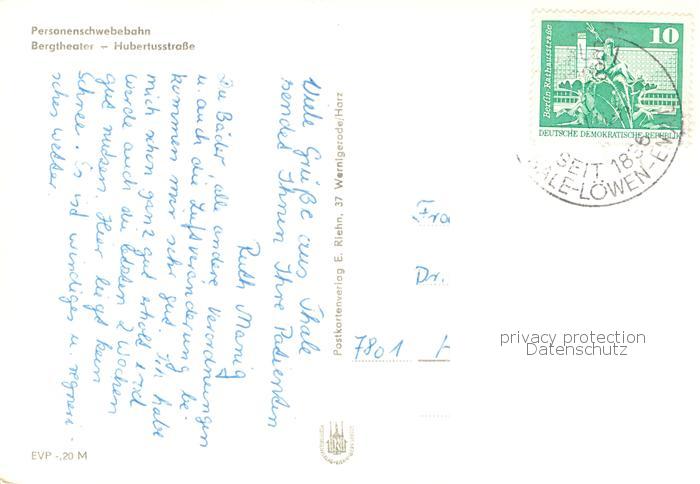 Personenschwebebahn
Bergtheater – Hubertusstraße
Viele Grüße aus Thale
sendet Ihnen Ihre Patientin
Ruth Manig
Die Bäder, alle andere Verordnungen
u. auch die Luftveränderung be-
kommen mir sehr gut. Ich habe
mich schon ganz gut erholt und
werde auch die letzten 2 Wochen
gut nutzen. Hier liegt kein
Schnee. Es ist windiges u. regneri-
sches Wetter.
EVP -,20 M
Postkartenverlag E. Riehn, 37 Wernigerode/Harz
Berlin, Rathausstraße
10
DEUTSCHE DEMOKRATISCHE REPUBLIK
SEIT 1836
HALE-LÖWEN-EN
Fra
Dr.
7801 H
privacy protection
Datenschutz